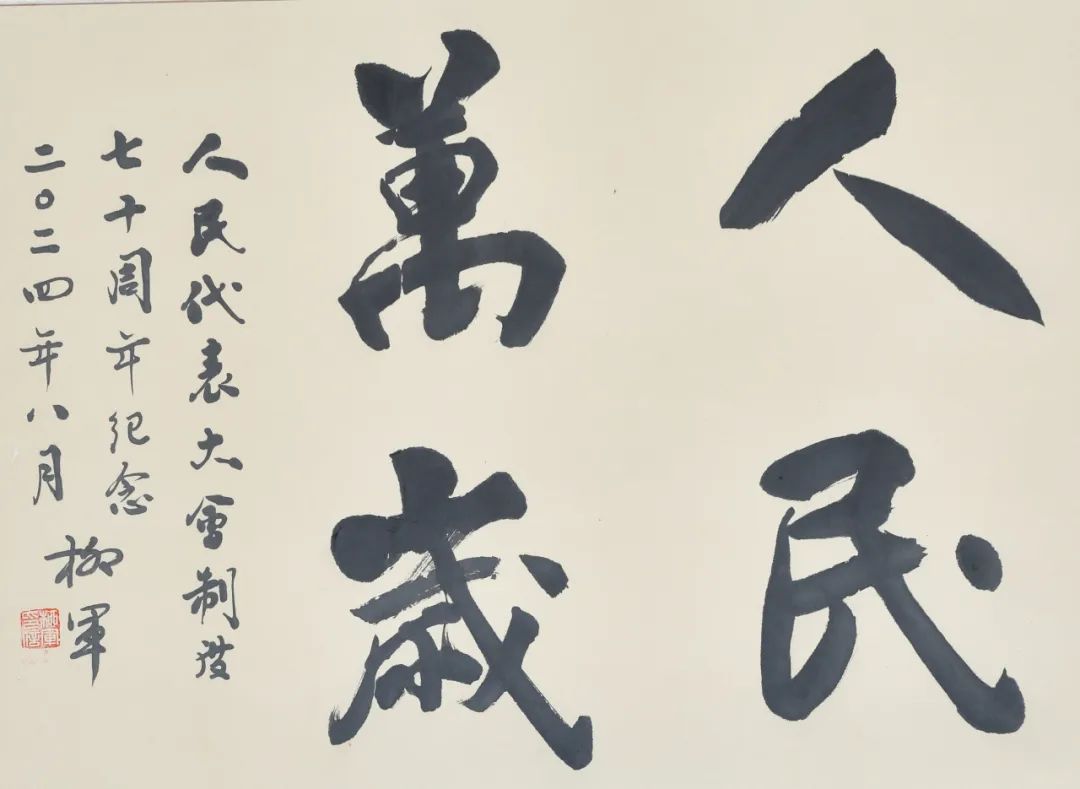 人民
萬歲
人民代表大會制度
七十周年纪念
二〇二四年八月
柳軍